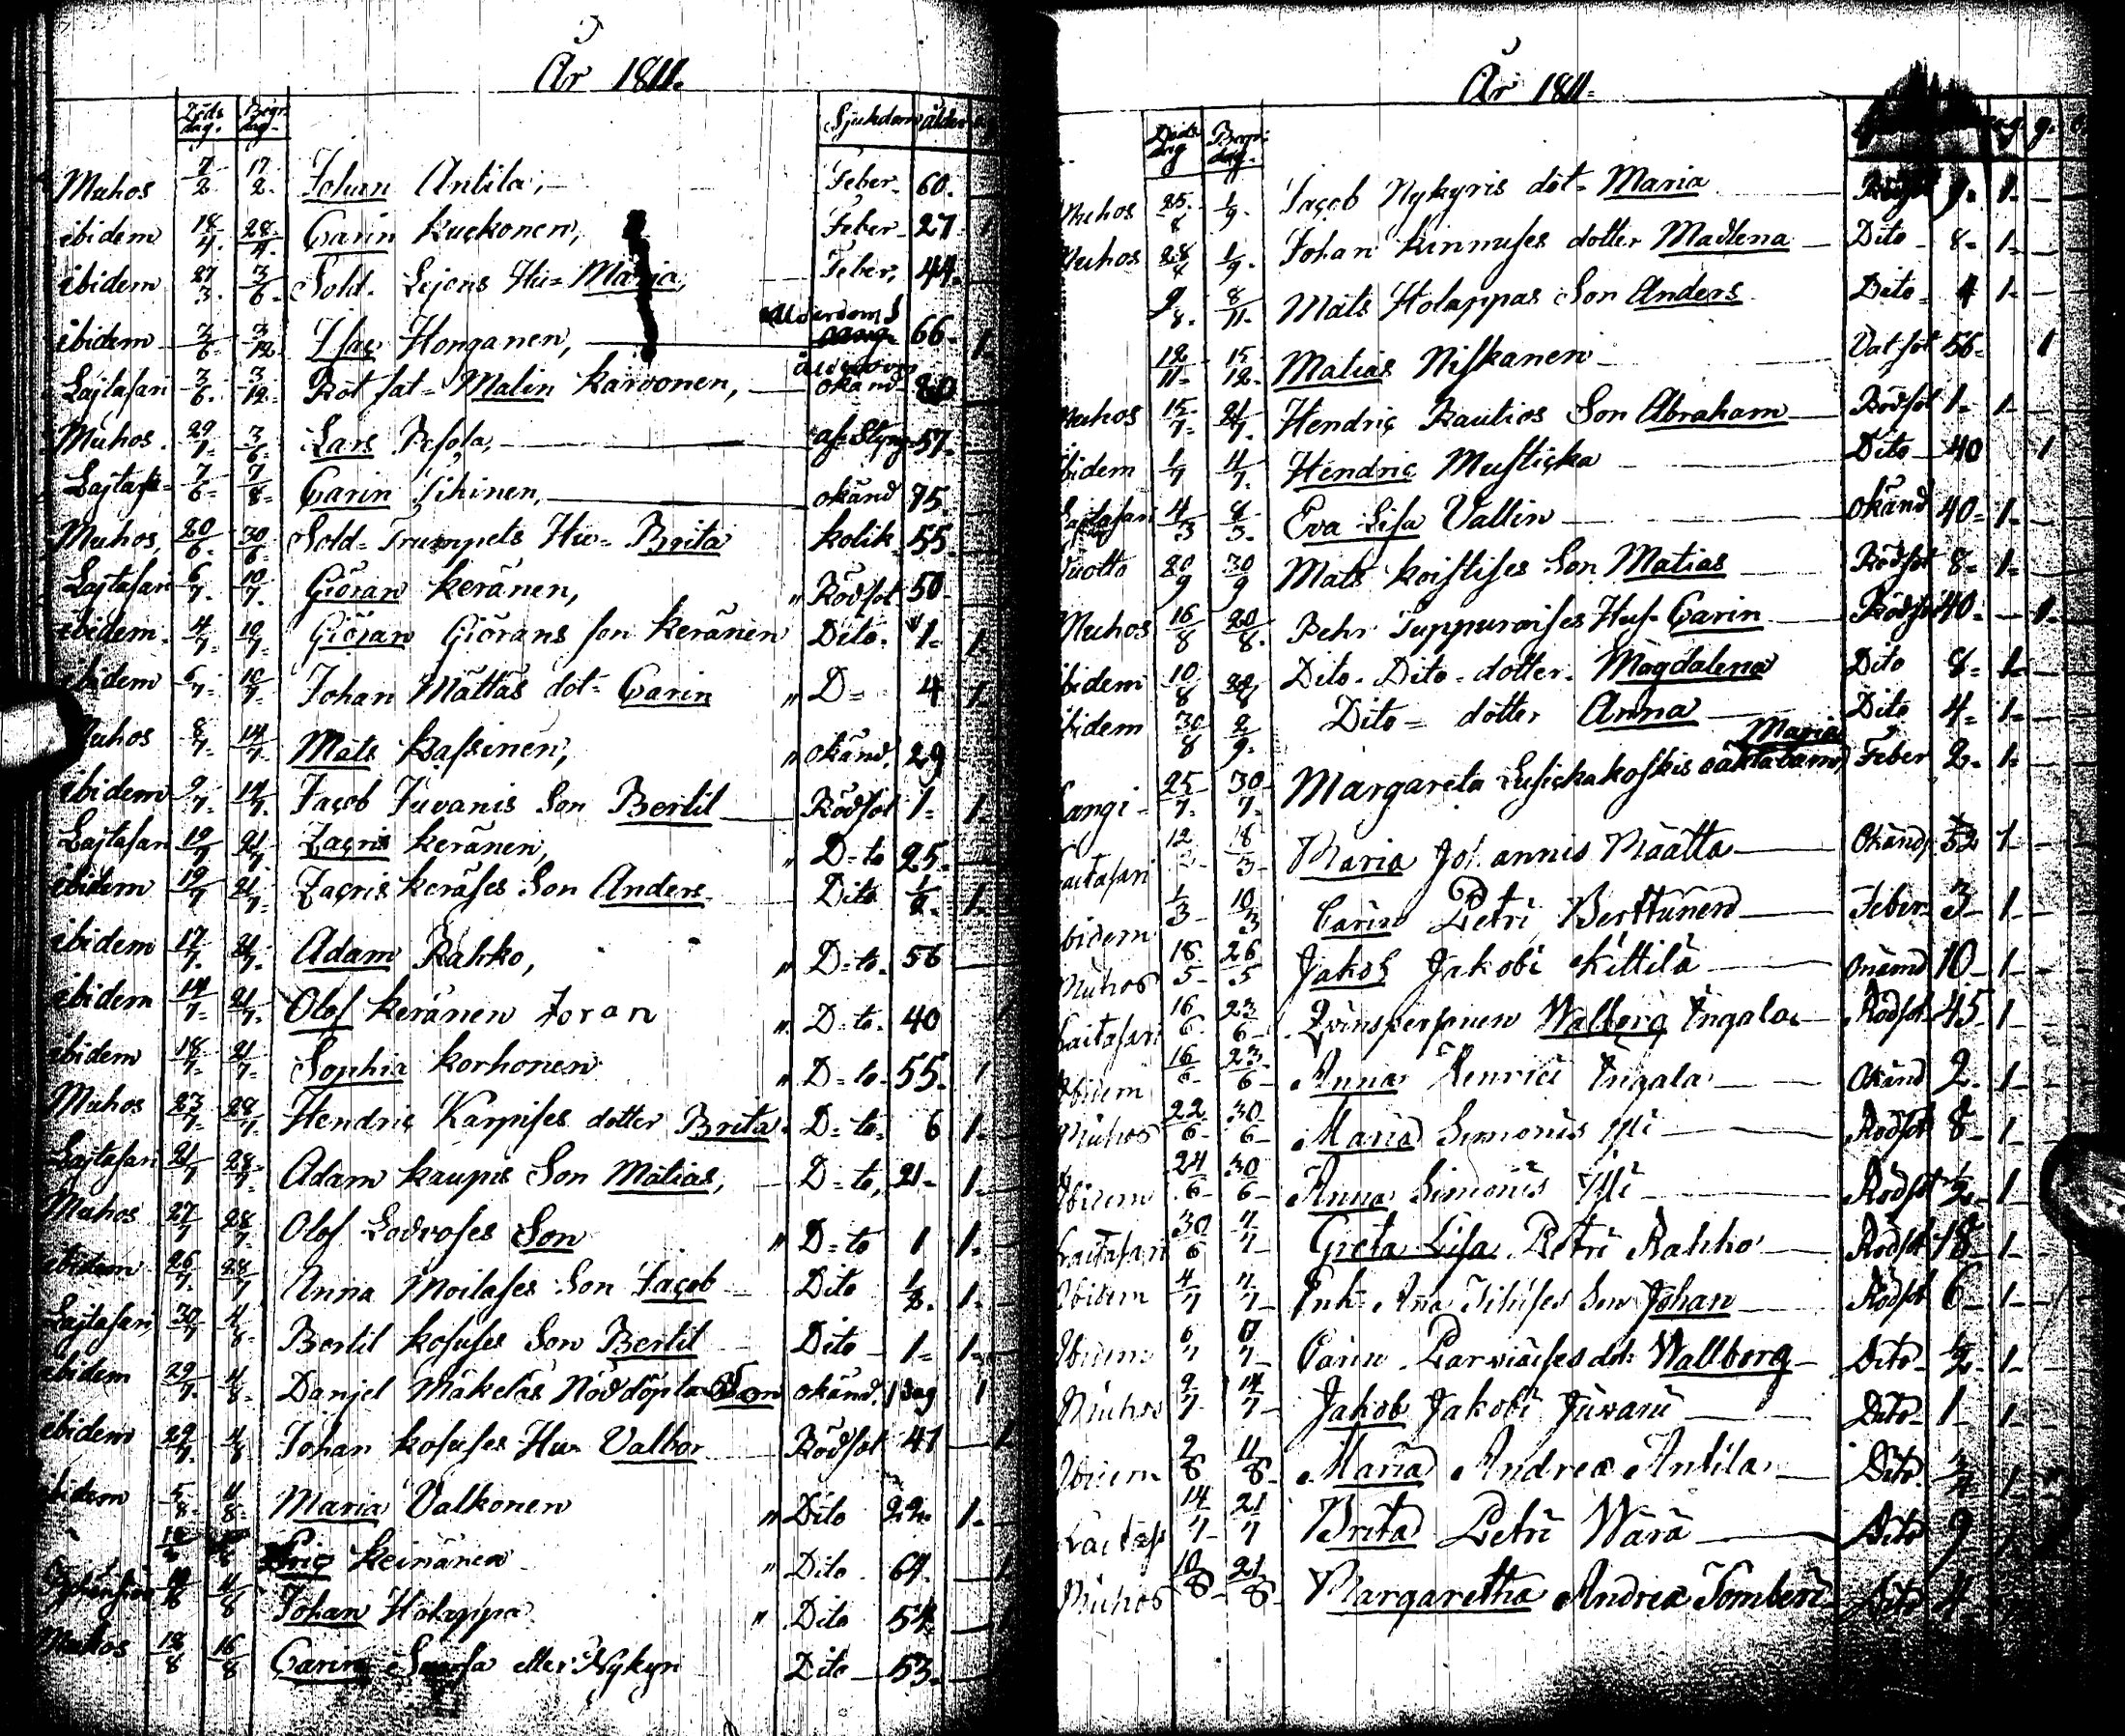 År 1811.
Döds dag. Begr. dag. Sjukdom ålder
Muhos 7/2 17/2 Johan Antila, Feber 60.
ibidem 18/4 28/4 Carin Kuckonen, Feber 27
ibidem 27/3 3/6 Sold. Lejons Hu= Maria, Feber 44.
ibidem 2/6 3/12 Isac Honganen, 66 1
Lajtasari 3/6 3/12 Rot fat= Malin Karvonen, okänd 80
Muhos 29/7 3/6 Lars Pesola, af Styng 57
Lajtasa= 7/6 7/8 Carin Sihinen, okänd 75
Muhos 20/6 30/6 Sold= Trumpets Hu= Brita kolik 55
Lajtasari 6/7 10/7 Giöran Keränen, " Rödsot 50
ibidem 4/7 10/7 Giöran Giörans son Keränen Dito 1 1
ibidem 6/7 10/7 Johan Mattas dot= Carin " D= 4 1
Muhos 8/7 14/7 Mats Kassinen, " okänd 29
ibidem 9/7 14/7 Jacob Juvanis Son Bertil Rödsot 1 1
Lajtasari 19/7 21/7 Zacris Keränen, " D=to 25
ibidem 19/7 21/7 Zacris Keräses Son Anders Dito 1
ibidem 17/7 21/7 Adam Rahko, " D=to 56
ibidem 14/7 21/7 Olof Keränen Zoran " D=to 40
ibidem 18/7 21/7 Sophia Korhonen " D=to 55 1
Muhos 23/7 28/7 Hendric Karpises dotter Brita D=to 6 1
Lajtasari 21/7 28/7 Adam Kaupis Son Matias, D=to, 21 1
Muhos 27/7 28/7 Olof Lodvoses Son " D=to 1 1
ibidem 26/7 28/7 Anna Moilases Son Jacob Dito 1/2 1
Lajtasari 30/7 4/8 Bertil Kosuses Son Bertil Dito 1 1
ibidem 29/7 4/8 Danjel Mäkeläs Nöddöpta Son okänd 1 dag 1
ibidem 29/7 4/8 Johan Kosuses Hu= Valbor Rödsot 41 1
ibidem 5/8 11/8 Maria Valkonen " Dito 22 1
Eric Keinänen " Dito 64 1
11/8 Johan Holappa " Dito 54 1
Muhos 12/8 16/8 Carin eller Nykyri Dito 53
År 1811.
Döds dag Begr: dag.
Muhos 25/8 1/9 Jacob Nykyris dot= Maria 9 1
Muhos 28/8 1/9 Johan Kinnuses dotter Madlena Dito 8 1
9/8 8/11 Mats Holappas Son Anders Dito 4 1
12/11 15/12 Matias Niskanen Vatsot 56 1
Muhos 15/7 21/7 Hendric Rautios Son Abraham Rödsot 1 1
ibidem 1/7 4/7 Hendric Musticka Dito 40 1
Lajtasari 4/3 8/3 Eva Lisa Vallin okänd 40 1
Vuotto 20/9 30/9 Mats Koistises Son Matias Rödsot 8 1
Muhos 16/8 20/8 Pehr Tuppuraises Hus= Carin Rödsot 40 1
ibidem 10/8 Dito Dito dotter Magdalena Dito 8 1
ibidem 30/8 2/9 Dito= dotter Anna Dito 4 1
Sangi 25/7 30/7 Margareta Lusickakoskis oäkta barn Maria Feber 2 1
Laitasari 12 18/3 Maria Johannis Määtta Okänd 52 1
Ibidem 1/3 10/3 Carin Petri Berttunen Feber 3 1
Muhos 18/5 26/5 Jakob Jakobi Kittilä okänd 10 1
Laitasari 16/6 23/6 Qvinspersonen Walborg Engala Rödsot 45 1
Ibidem 16/6 23/6 Anna Henrici Engala Okänd 2 1
Muhos 22/6 30/6 Maria Simonis Yli Rödsot 8 1
Ibidem 24/6 30/6 Anna Simonis Yli Rödsot 1/2 1
Laitasari 30/6 7 Greta Lisa Petri Rahko Rödsot 18 1
Ibidem 4/7 7 Enk= Aña Tihises Son Johan Rödsot 6 1
Ibidem 6/7 7 Carin Parviaises dot: Wallborg Dito 1/2 1
Muhos 9/7 14/7 Jakob Jakobi Juvani Dito 1 1
Ibidem 2/8 11/8 Maria Andrea Antila Dito 1
Laitas 14/7 21/7 Brita Petri Wärä Dito 9 1
Muhos 10/8 21/8 Margaretha Andrea Tomberi Dito 4